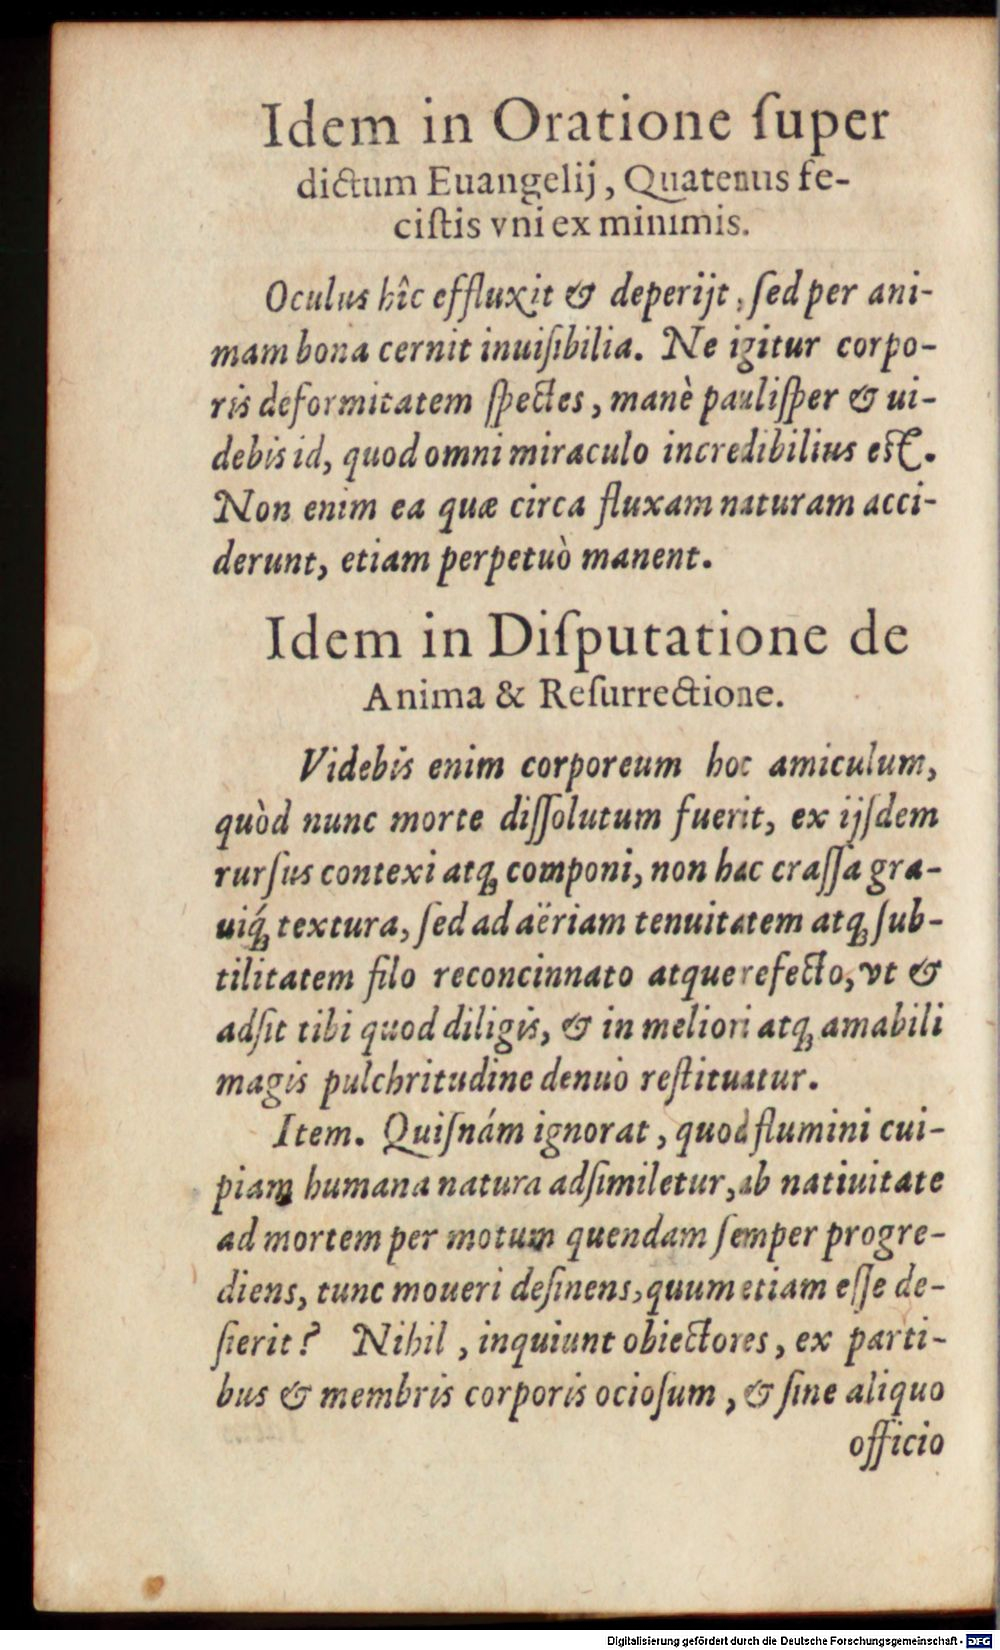 Idem in Oratione ſuper
dictum Euangelij, Quatenus fe-
ciſtis vni ex minimis.
Oculus hîc effluxit & deperijt, ſed per ani-
mam bona cernit inuiſibilia. Ne igitur corpo-
ris deformitatem ſpectes, manè pauliſper & ui-
debis id, quod omni miraculo incredibilius est.
Non enim ea quæ circa fluxam naturam acci-
derunt, etiam perpetuò manent.
Idem in Diſputatione de
Anima & Reſurrectione.
Videbis enim corporeum hoc amiculum,
quòd nunc morte diſſolutum fuerit, ex ijſdem
rurſus contexi atq; componi, non hac craſſa gra-
uiq́; textura, ſed ad aëriam tenuitatem atq; ſub-
tilitatem filo reconcinnato atque refecto, vt &
adſit tibi quod diligis, & in meliori atq; amabili
magis pulchritudine denuò reſtituatur.
Item. Quiſnám ignorat, quod flumini cui-
piam humana natura adſimiletur, ab natiuitate
ad mortem per motum quendam ſemper progre-
diens, tunc moueri deſinens, quum etiam eſſe de-
ſierit? Nihil, inquiunt obiectores, ex parti-
bus & membris corporis ocioſum, & ſine aliquo
officio
Digitalisierung gefördert durch die Deutsche Forschungsgemeinschaft - DFG